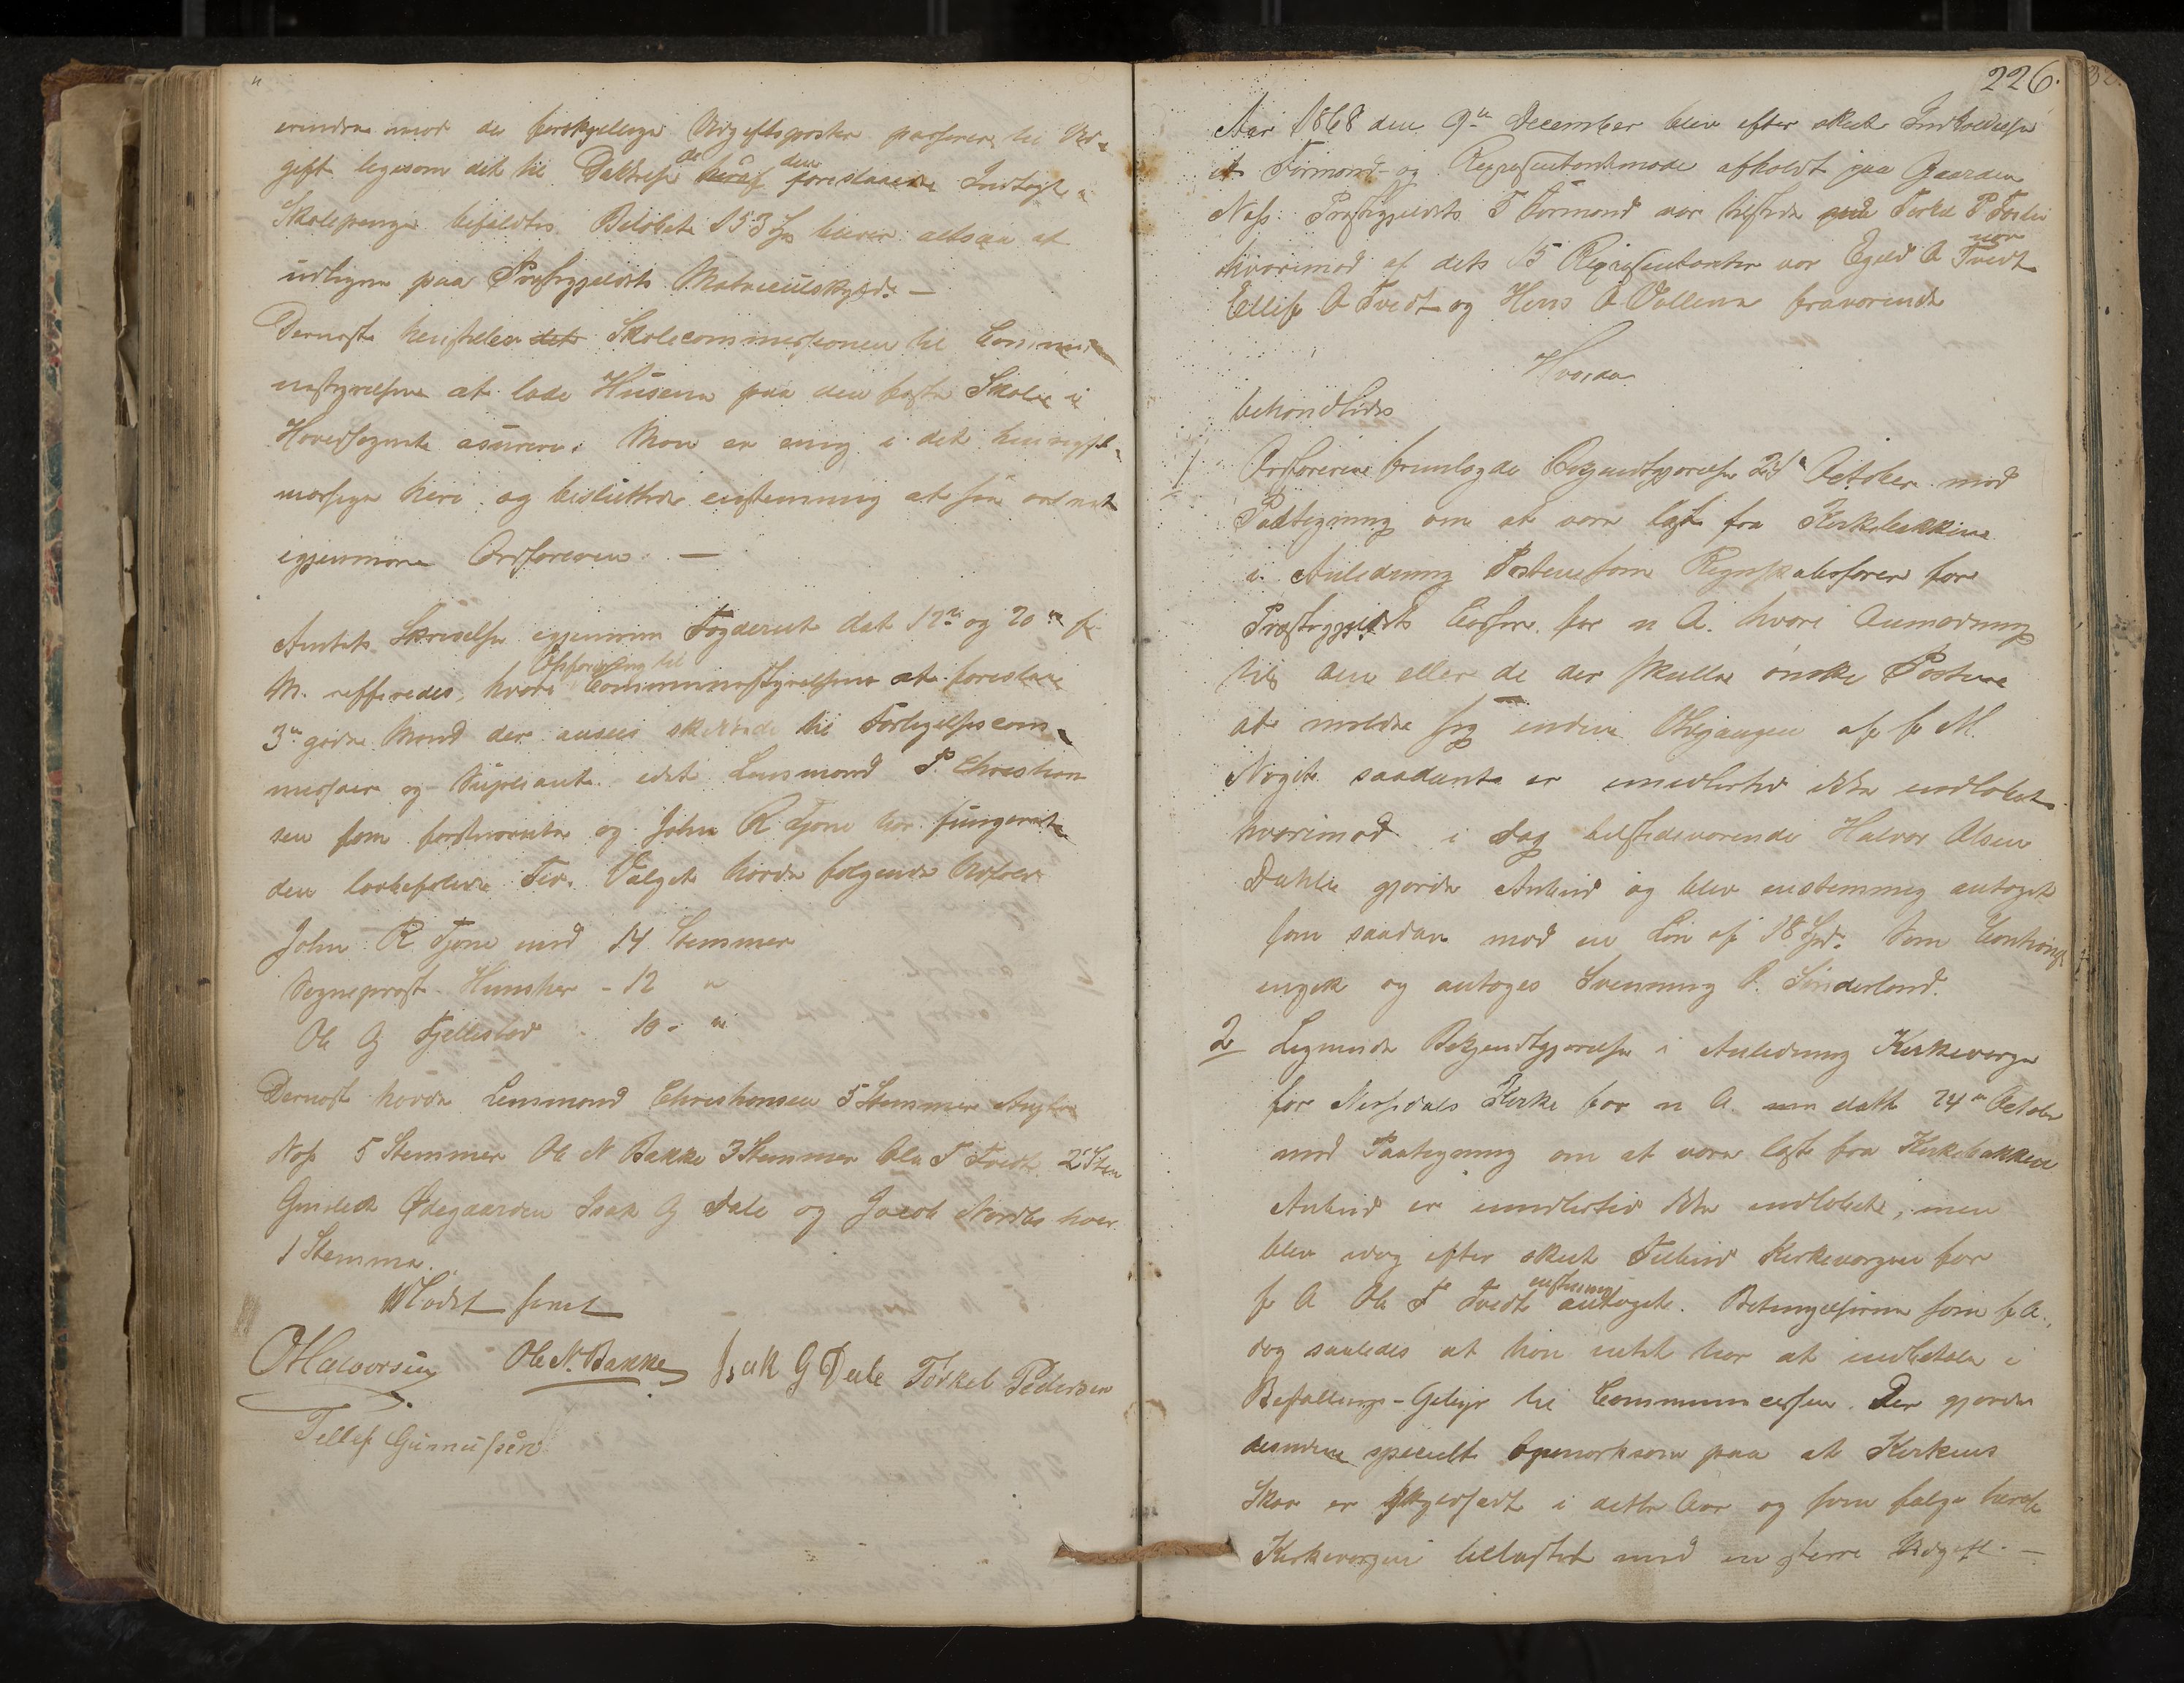 erindre mod de forskjelige Udgiftsposter passerer til Ud-
gift ligesom det til Dækkelse de heraf den foreslaaede Indtægt
Skolepenge bifaldtes. Beløbet 153 bliver altsaa at
udligne paa Præstegjeldets Matrieulskyld. —
Dernæst henstiller det Skolecommissionen til Commu-
nestyrelsen at lade Husene paa den faste Skole i
Hovedsognet asurere. Man er enig i det
heri og besluttede enstemmig at faa ordnet
igjennem Ordføreren. —
Amtets Skrivelse igjennem Fogderiet dat 12te og 20de f
M. refferedes, hvori Opfordring til Communestyrelsen at foreslaae
3de gode Mænd der ansees skikkede til Forligelsescom-
missair og Supleant idet Lensmand P. Christian-
sen som forstnævnte og John R Tjøne har fungeret
den lovbefalede Tid. Valget havde følgende Udfald
John R Tjøne med 14 Stemmer
Sogneprest - 12 "
Ole G Fjellestad - 10 - "
Dernæst havde Lensmand Christiansen 5 Stemmer
Næs 5 Stemmer Ole N Bakke 3 Stemmer Ole T Tvedt 2 Stem
Ødegaarden Isak G Dale og Jacob hver
1 Stemme.
Mødet hævet
O Halvorsen Ole N. Bakke Isak G Dale Tørkel Pedersen
Tellef Gunnufsen
226.
Aar 1868 den 9de December blev efter skeet Indkaldelse
et Formænd- og Repræsentantmøde afholdt paa Gaarden
Næs. Præstegjeldets F Formænd var tilstede
hvorimod af dets 15 Repræsentanter var Egeld O Tvedt
Ellef O Tvedt og Hans O Vallene fraværende
Hvorda
behandledes
1 Ordføreren fremlagde Bekjendtgjørelse 24de October med
Paategning om at være læst fra Kirkebakken
i Anledning Posten som Regnskabsfører for
Præstegjeldets Casser for n A. hvori Anmodning
til den eller de der skulle ønske Posten
at melde sig inden Udgangen af f M.
Noget saadant er imidlertid ikke indløbet
hvorimod i Dag tilstedeværende Halvor Olsen
Dahle gjorde Anbud og blev enstemmig antaget
som saadan mod en Løn af 18 Spd. Som Cautionist
indgik og antoges Svenning O. Sønderland.
2 Lignende Bekjendtgjørelse i Anledning Kirkeværge
for Nissedals Kirke for n A datt 24de October
med Paategning om at være læst fra Kirkebakken
Anbud er imidlertid ikke indløbet, men
blev idag efter skeet Tilbud Kirkeværgen for
f A Ole T Tvedt enstemmig antaget. Betingelserne som f A.
dog saaledes at han intet har at indbetale i
Befallings-Gebyr til Communecassen. Der gjordes
desuden specielt opmærksom paa at Kirkens
er i dette Aar og som følge heraf
Kirkeværgen belastet med en større Udgift. —